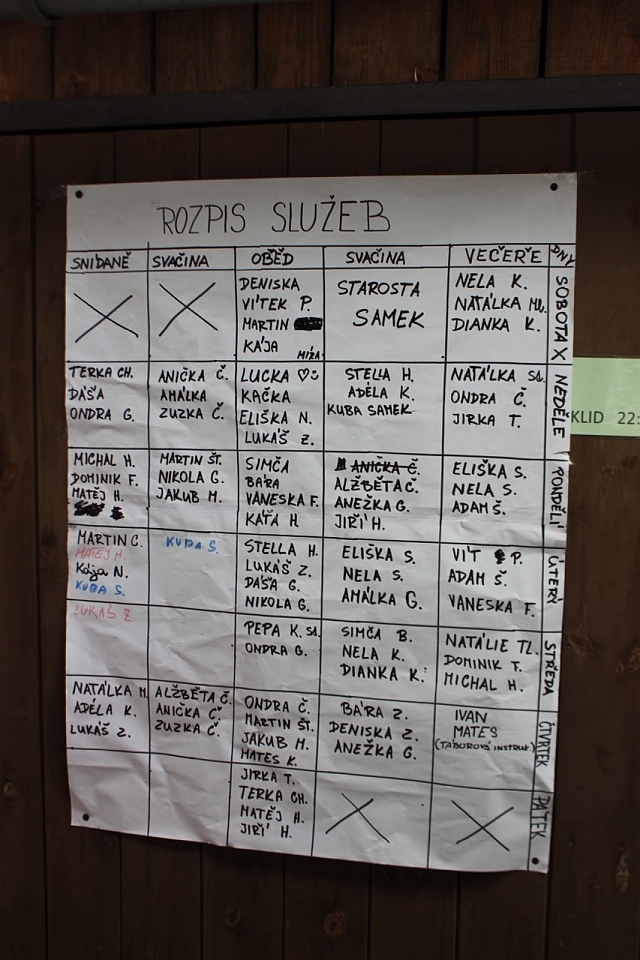 ROZPIS SLUŽEB
SNÍDANĚ SVAČINA OBĚD SVAČINA VEČEŘE DNY
DENISKA
VÍTEK P.
MARTIN
KÁJA
MÍŽA
STAROSTA
SAMEK
NELA K.
NATÁLKA
DIANKA K.
SOBOTA X
TERKA CH.
DÁŠA
ONDRA G.
ANIČKA Č.
AMÁLKA
ZUZKA Č.
LUCKA ♡
KAČKA
ELIŠKA N.
LUKÁŠ Z.
STELLA H.
ADÉLA K.
KUBA SAMEK
NATÁLKA
ONDRA Č.
JIRKA T.
NEDĚLE
MICHAL H.
DOMINIK F.
MATĚJ H.
MARTIN ŠT.
NIKOLA G.
JAKUB M.
SIMČA
BÁRA
VANESKA F.
KÁŤA H
ANIČKA Č.
ALŽBĚTA Č.
ANEŽKA G.
JIŘÍ H.
ELIŠKA S.
NELA S.
ADAM Š.
PONDĚLÍ
MARTIN C.
MATĚJ H.
Kája N.
KUBA S.
KUBA S.
STELLA H.
LUKÁŠ Z.
DÁŠA G.
NIKOLA G.
ELIŠKA S.
NELA S.
AMÁLKA G.
VÍT P.
ADAM Š.
VANESKA F.
ÚTERÝ
LUKÁŠ Z.
PEPA K. Sd.
ONDRA G.
SIMČA B.
NELA K.
DIANKA K.
NATÁLIE TL.
DOMINIK F.
MICHAL H.
STŘEDA
NATÁLKA M.
ADÉLA K.
LUKÁŠ Z.
ALŽBĚTA Č.
ANIČKA Č.
ZUZKA Č.
ONDRA Č.
MARTIN ŠT.
JAKUB M.
MATES K.
BÁRA Z.
DENISKA Z.
ANEŽKA G.
IVAN
MATES
(TÁBOROVÁ INSTRUK.)
ČTVRTEK
JIRKA T.
TERKA CH.
MATĚJ H.
JIŘÍ H.
PÁTEK
KLID 22: